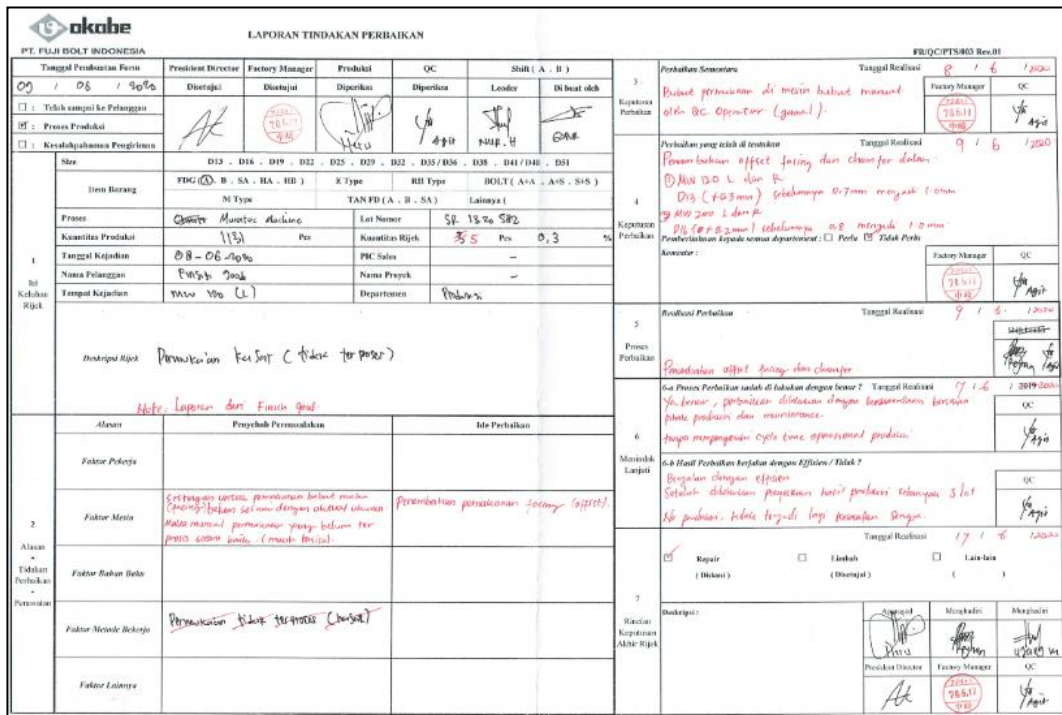 okabe
PT. FUJI BOLT INDONESIA
LAPORAN TINDAKAN PERBAIKAN
FR/QC/PTS/003 Rev.01
Tanggal Pembuatan Form
President Director
Factory Manager
Produksi
QC
Shift ( A . B )
09 / 06 / 2020
Disetujui
Disetujui
Diperiksa
Diperiksa
Leader
Di buat oleh
☐ : Telah sampai ke Pelanggan
☑ : Proses Produksi
☐ : Kesalahpahaman Pengiriman
Heru
Agit
NUR. H
Size
D13 . D16 . D19 . D22 . D25 . D29 . D32 . D35/D36 . D38 . D41/D40 . D51
Item Barang
FDG (A . B . SA . HA . HB )
E Type
RH Type
BOLT ( A+A . A+S . S+S )
M Type
TAN FD ( A . B . SA )
Lainnya (
Proses
Muratec Machine
Lot Nomor
SR 1320 582
Kuantitas Produksi
1131 Pcs
Kuantitas Rijek
5 Pcs 0,3 %
Tanggal Kejadian
08-06-2020
PIC Sales
-
Nama Pelanggan
Finish good
Nama Proyek
-
Tempat Kejadian
MW 120 (L)
Departemen
Produksi
1
Isi Keluhan Rijek
Deskripsi Rijek
Permukaian kasar ( tidak ter poses )
Note: Laporan dari Finish good.
Alasan
Penyebab Permasalahan
Ide Perbaikan
Faktor Pekerja
Faktor Mesin
Settingan untuk pemakanan bubut muka
(facing) belum sesuai dengan aktual ukuran
Maka muncul permukaan yang belum ter
proses secara baik. (masih kasar).
Penambahan pemakanan facing (offset).
2
Alasan
-
Tidakan Perbaikan
-
Faktor Bahan Baku
Faktor Metode Bekerja
Permukaian tidak terproses (kasar)
Faktor Lainnya
3
Keputusan Perbaikan
Perbaikan Sementara
Tanggal Realisasi 8 / 6 / 2020
Bubut permukaan di mesin bubut manual
oleh QC. Operator
Factory Manager
QC
Agit
4
Keputusan Perbaikan
Perbaikan yang telah di tentukan
Tanggal Realisasi 9 / 6 / 2020
Penambahan offset facing dan chamfer dalam
① MW 120 L dan R
D13 (+0.3 mm) sebelumnya 0.7mm menjadi 1.0mm
② MW 200 L dan R
D16 (+0.2 mm) sebelumnya 0.8 menjadi 1.0 mm
Pemberitahuan kepada semua departement : ☐ Perlu ☑ Tidak Perlu
Komentar :
Factory Manager
QC
Agit
5
Proses Perbaikan
Realisasi Perbaikan
Tanggal Realisasi 9 / 6 / 2020
Penambahan offset facing dan chamfer
6
Menindak Lanjuti
6-a Proses Perbaikan sudah di lakukan dengan benar ?
Tanggal Realisasi 17 / 6 / 2019 2020
QC
Ya benar, perbaikan dilakukan dengan berkoordinasi bersama
pihak produksi dan maintenance
tanpa mempengaruhi cycle time operasional produksi
Agit
6-b Hasil Perbaikan berjalan dengan Effisien / Tidak ?
QC
Berjalan dengan efisien
Setelah dilakukan pengecekan hasil produksi sebanyak 3 lot
No produksi, tidak terjadi lagi
Agit
Tanggal Realisasi 17 / 6 / 2020
7
Rincian Keputusan Akhir Rijek
☑ Repair
☐ Limbah
☐ Lain-lain
( Diskusi )
( Disetujui )
( )
Deskripsi :
Approved
Menghadiri
Menghadiri
Heru
President Director
Factory Manager
QC
Agit